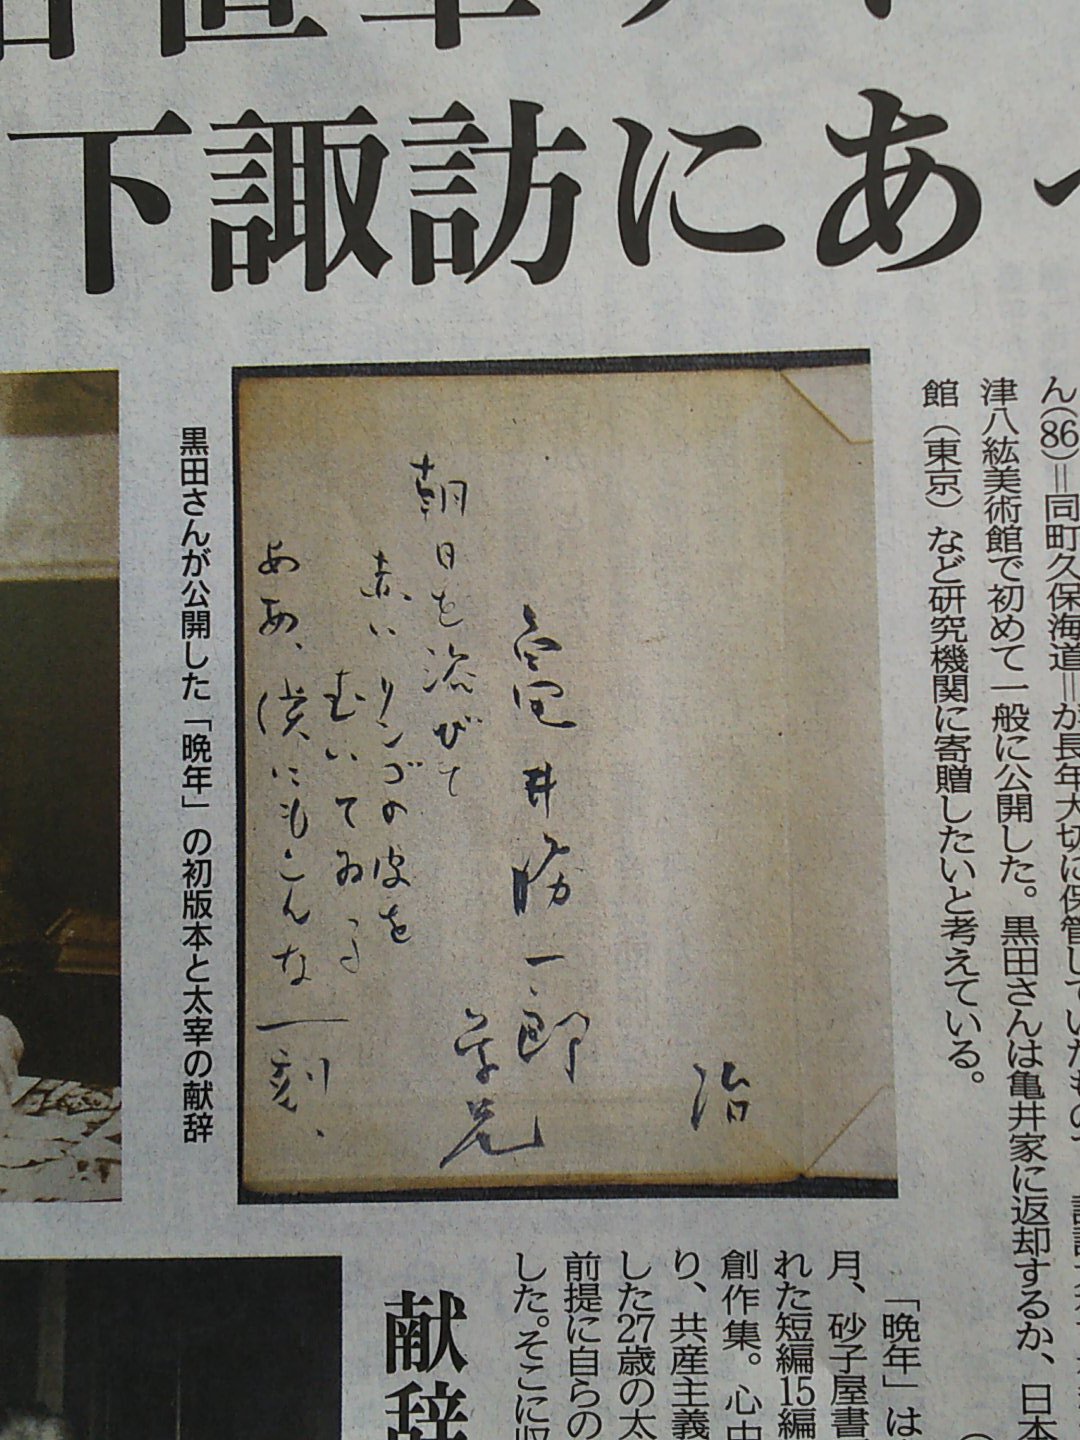 下諏訪にあっ
ん(86)=同町久保海道=が長年大切に保管していたもので、
津八紘美術館で初めて一般に公開した。黒田さんは亀井家に返却するか、日本
館(東京)など研究機関に寄贈したいと考えている。
治
亀井勝一郎
学兄
朝日を浴びて
赤いリンゴの皮を
むいてゐる
ああ、僕にもこんな一刻、
黒田さんが公開した「晩年」の初版本と太宰の献辞
「晩年」は
月、砂子屋書
れた短編15編
創作集。心中
り、共産主義
した27歳の太
前提に自らの
した。そこに収
献辞